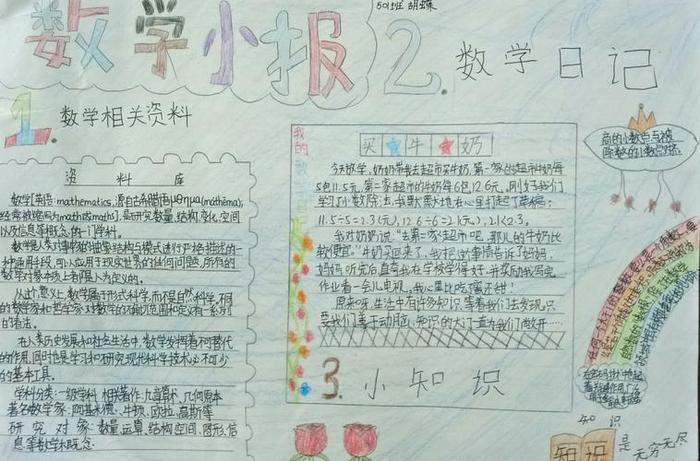 数学小报
501班 胡蝶
2. 数学日记
1. 数学相关资料
资料库
数学[英语:mathematics,源自古希腊语μθημα(máthēma);
经常被缩写为math或maths],是研究数量、结构、变化、空间
以及信息等概念的一门学科。
数学是人类对事物的抽象结构与模式进行严格描述的一
种通用手段,可以应用于现实世界的任何问题,所有的
数学对象本质上都是人为定义的。
从这个意义上,数学属于形式科学,而不是自然科学。不同
的数学家和哲学家对数学的确切范围和定义有一系列
的看法。
在人类历史发展和社会生活中,数学发挥着不可替代
的作用,同时也是学习和研究现代科学技术必不可少
的基本工具。
学科分类:一级学科 相关著作:九章算术、几何原本
著名数学家:阿基米德、牛顿、欧拉、高斯等
研究对象:数量、运算、结构、空间、图形、信
息等数学概念
我的数学日记
买牛奶
今天放学,奶奶带我去超市买牛奶。第一家超市牛奶每
5包11.5元,第二家超市的牛奶每6包12.6元,刚好我们
学习了小数除法,我默默地在心里打起了草稿:
11.5÷5=2.3(元),12.6÷6=2.1(元),2.1<2.3。
我对奶奶说:“去第二家超市吧,那儿的牛奶比
较便宜。”牛奶买回来了,我把这事情告诉了妈妈,
妈妈听完后直夸我在学校学得好,并奖励我写完
作业看一会儿电视,我心里比吃糖还甜!
原来呀,生活中有许多知识,等着我们去发现,只
要我们善于动脑筋,知识的大门一直为我们敞开……
3. 小知识
商的小数点与被
除数的小数点对齐
知识
知识
是
无穷无尽